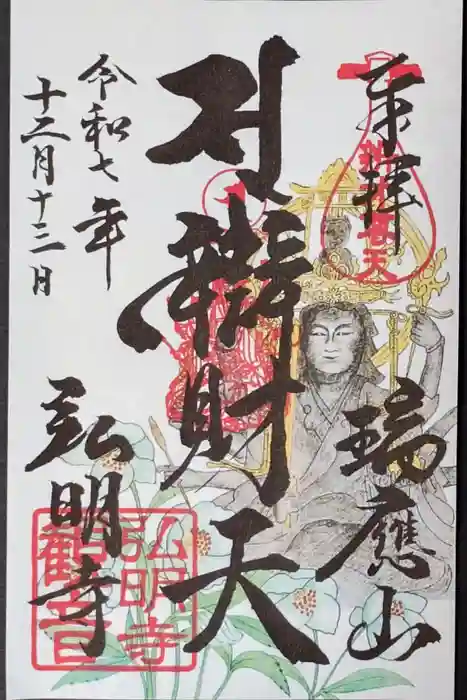 奉拝
瑞應山
辨財天
令和七年
十二月十三日
弘明寺
弘明寺
觀音